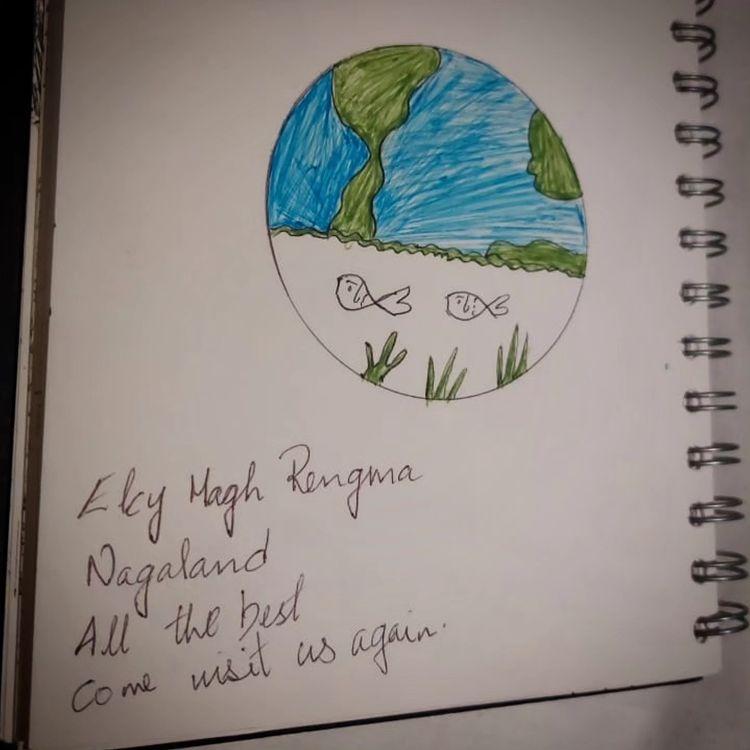 Eky Magh Rengma
Nagaland
All the best
Come visit us again.